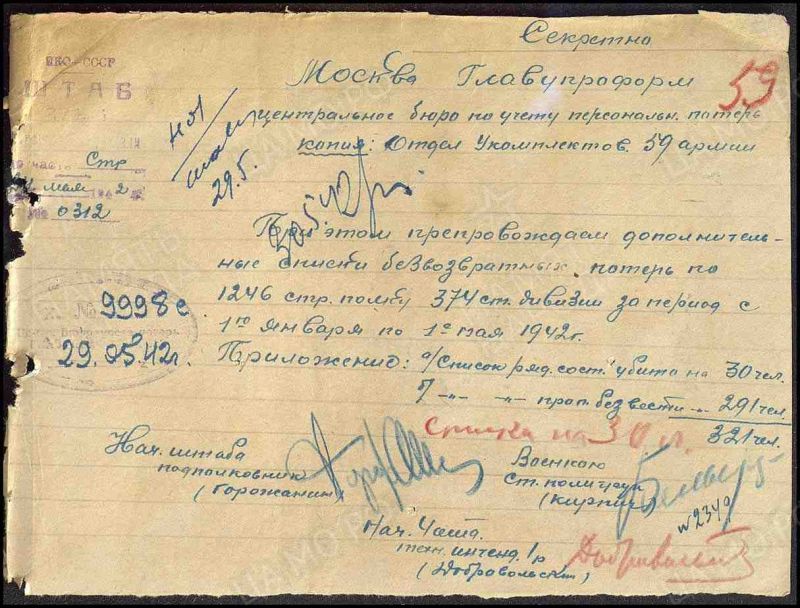 Секретно
Москва Главупраформ
59
центральное бюро по учету персональн. потерь
копия: Отдел Укомплектов. 59 армии
НКО-СССР
ШТАБ
час. Стр
мая 1942
№ 0312
29.5.
30542
При этом препровождаем дополнитель-
ные списки безвозвратных потерь по
1246 стр. полку 374 ст. дивизии за период с
1го января по 1е мая 1942г.
Вх. № 9998с
29.05.42г.
Приложение: а/Список ряд. сост. убита на 30 чел.
" —"— —"— проп. без вести —"— 291 чел.
321 чел.
списки на 30 л.
Нач. штаба
подполковник
(Горожанин)
Военком
ст. политрук
(Кирпич)
№2349
Нач. 4 отд.
техн. интенд. 1р
(Добровольский)
Добровольский